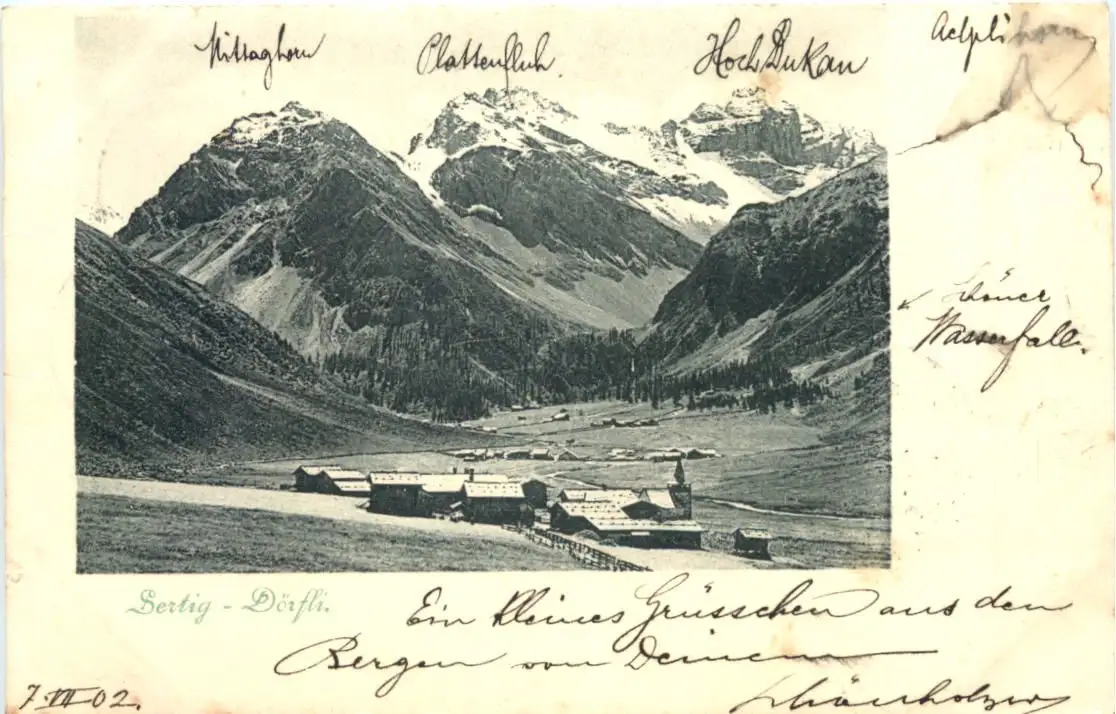 Mittaghorn Plattenfluh. Hoch Dukan Aelplihorn
schöner
Wasserfall.
Sertig - Dörfli.
Ein kleines Grüsschen aus den
Bergen von Deinem
Schönholzer
7. VII 02.